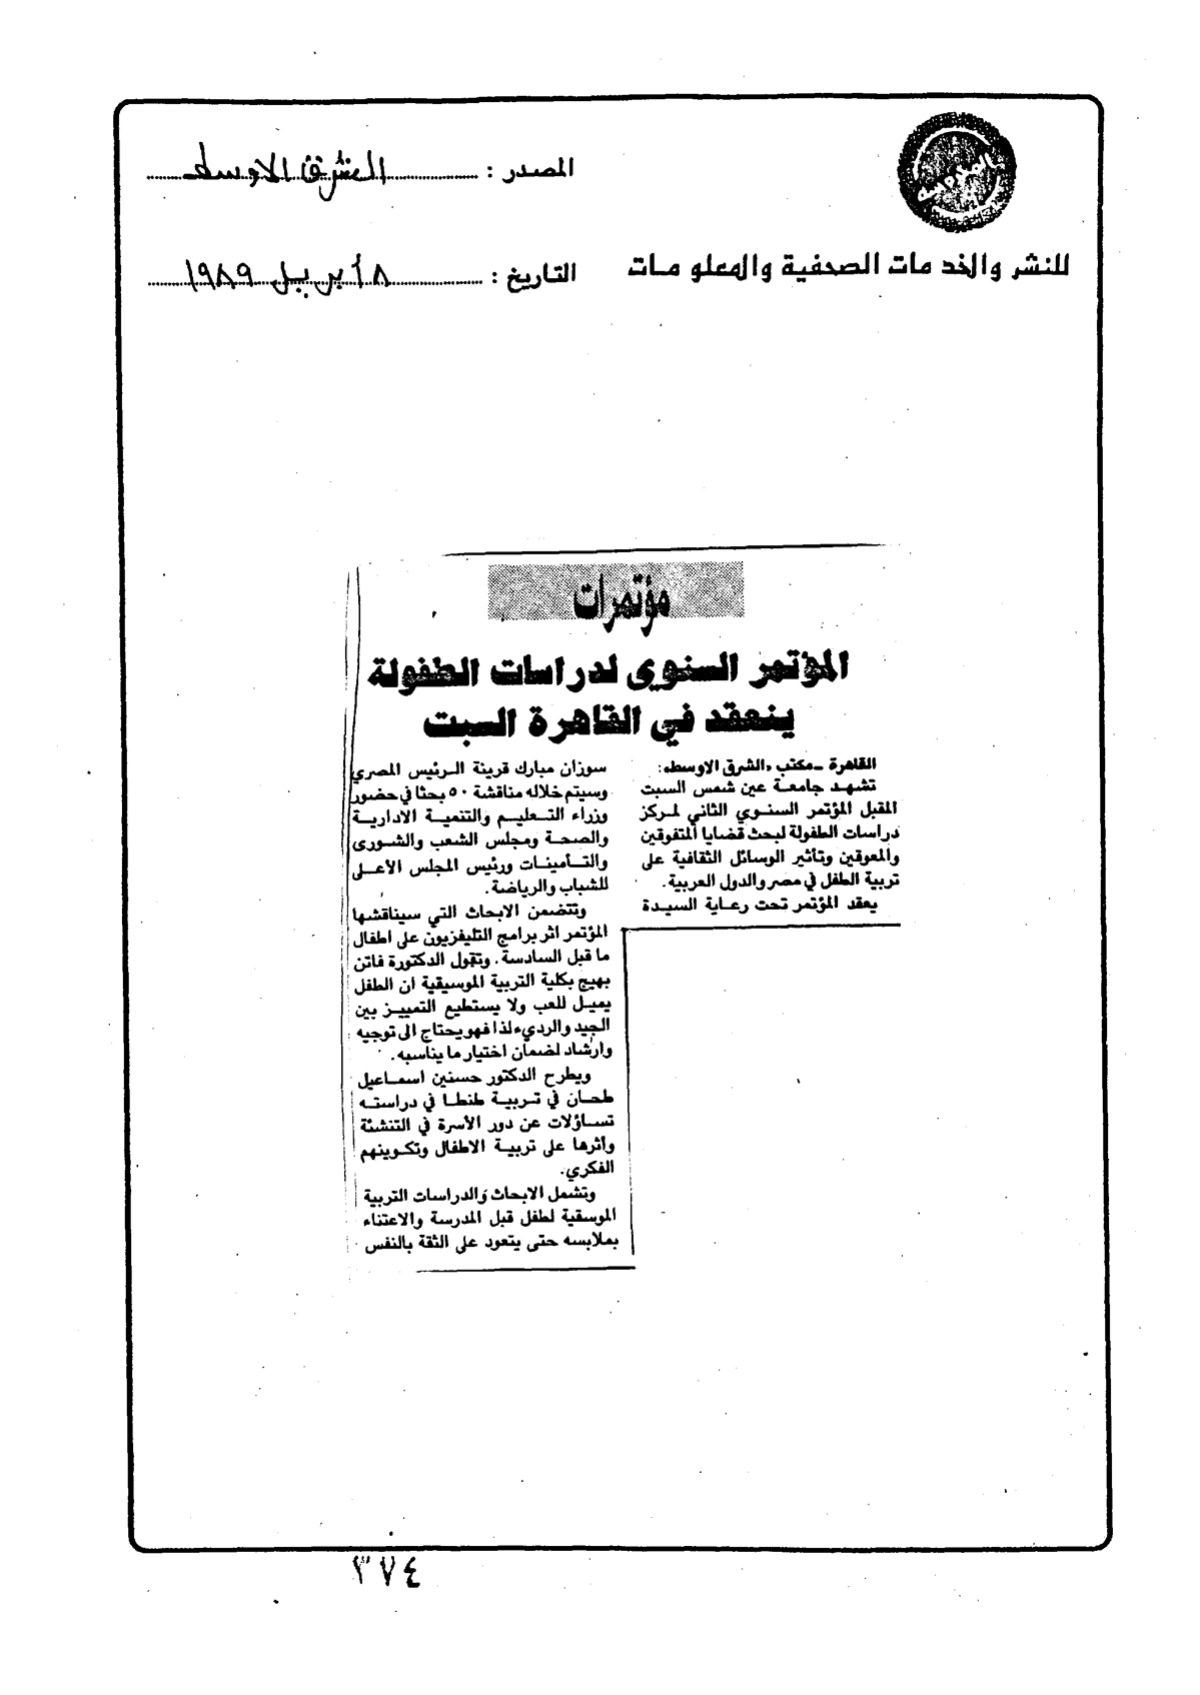 المصدر : الشرق الاوسط
للنشر والخدمات الصحفية والمعلومات
التاريخ : ١٨ أبريل ١٩٨٩
مؤتمرات
المؤتمر السنوى لدراسات الطفولة
ينعقد في القاهرة السبت
القاهرة ـ مكتب «الشرق الاوسط»:
تشهد جامعة عين شمس السبت
المقبل المؤتمر السنوي الثاني لمركز
دراسات الطفولة لبحث قضايا المتفوقين
والمعوقين وتأثير الوسائل الثقافية على
تربية الطفل في مصر والدول العربية.
يعقد المؤتمر تحت رعاية السيدة
سوزان مبارك قرينة الرئيس المصري
وسيتم خلاله مناقشة ٥٠ بحثا في حضور
وزراء التعليم والتنمية الادارية
والصحة ومجلس الشعب والشورى
والتأمينات ورئيس المجلس الأعلى
للشباب والرياضة.
وتتضمن الابحاث التي سيناقشها
المؤتمر اثر برامج التليفزيون على اطفال
ما قبل السادسة. وتقول الدكتورة فاتن
بهيج بكلية التربية الموسيقية ان الطفل
يميل للعب ولا يستطيع التمييز بين
الجيد والرديء لذا فهو يحتاج الى توجيه
وارشاد لضمان اختيار ما يناسبه.
ويطرح الدكتور حسنين اسماعيل
طحان في تربية طنطا في دراسته
تساؤلات عن دور الأسرة في التنشئة
واثرها على تربية الاطفال وتكوينهم
الفكري.
وتشمل الابحاث والدراسات التربية
الموسقية لطفل قبل المدرسة والاعتناء
بملابسه حتى يتعود على الثقة بالنفس
٣٧٤